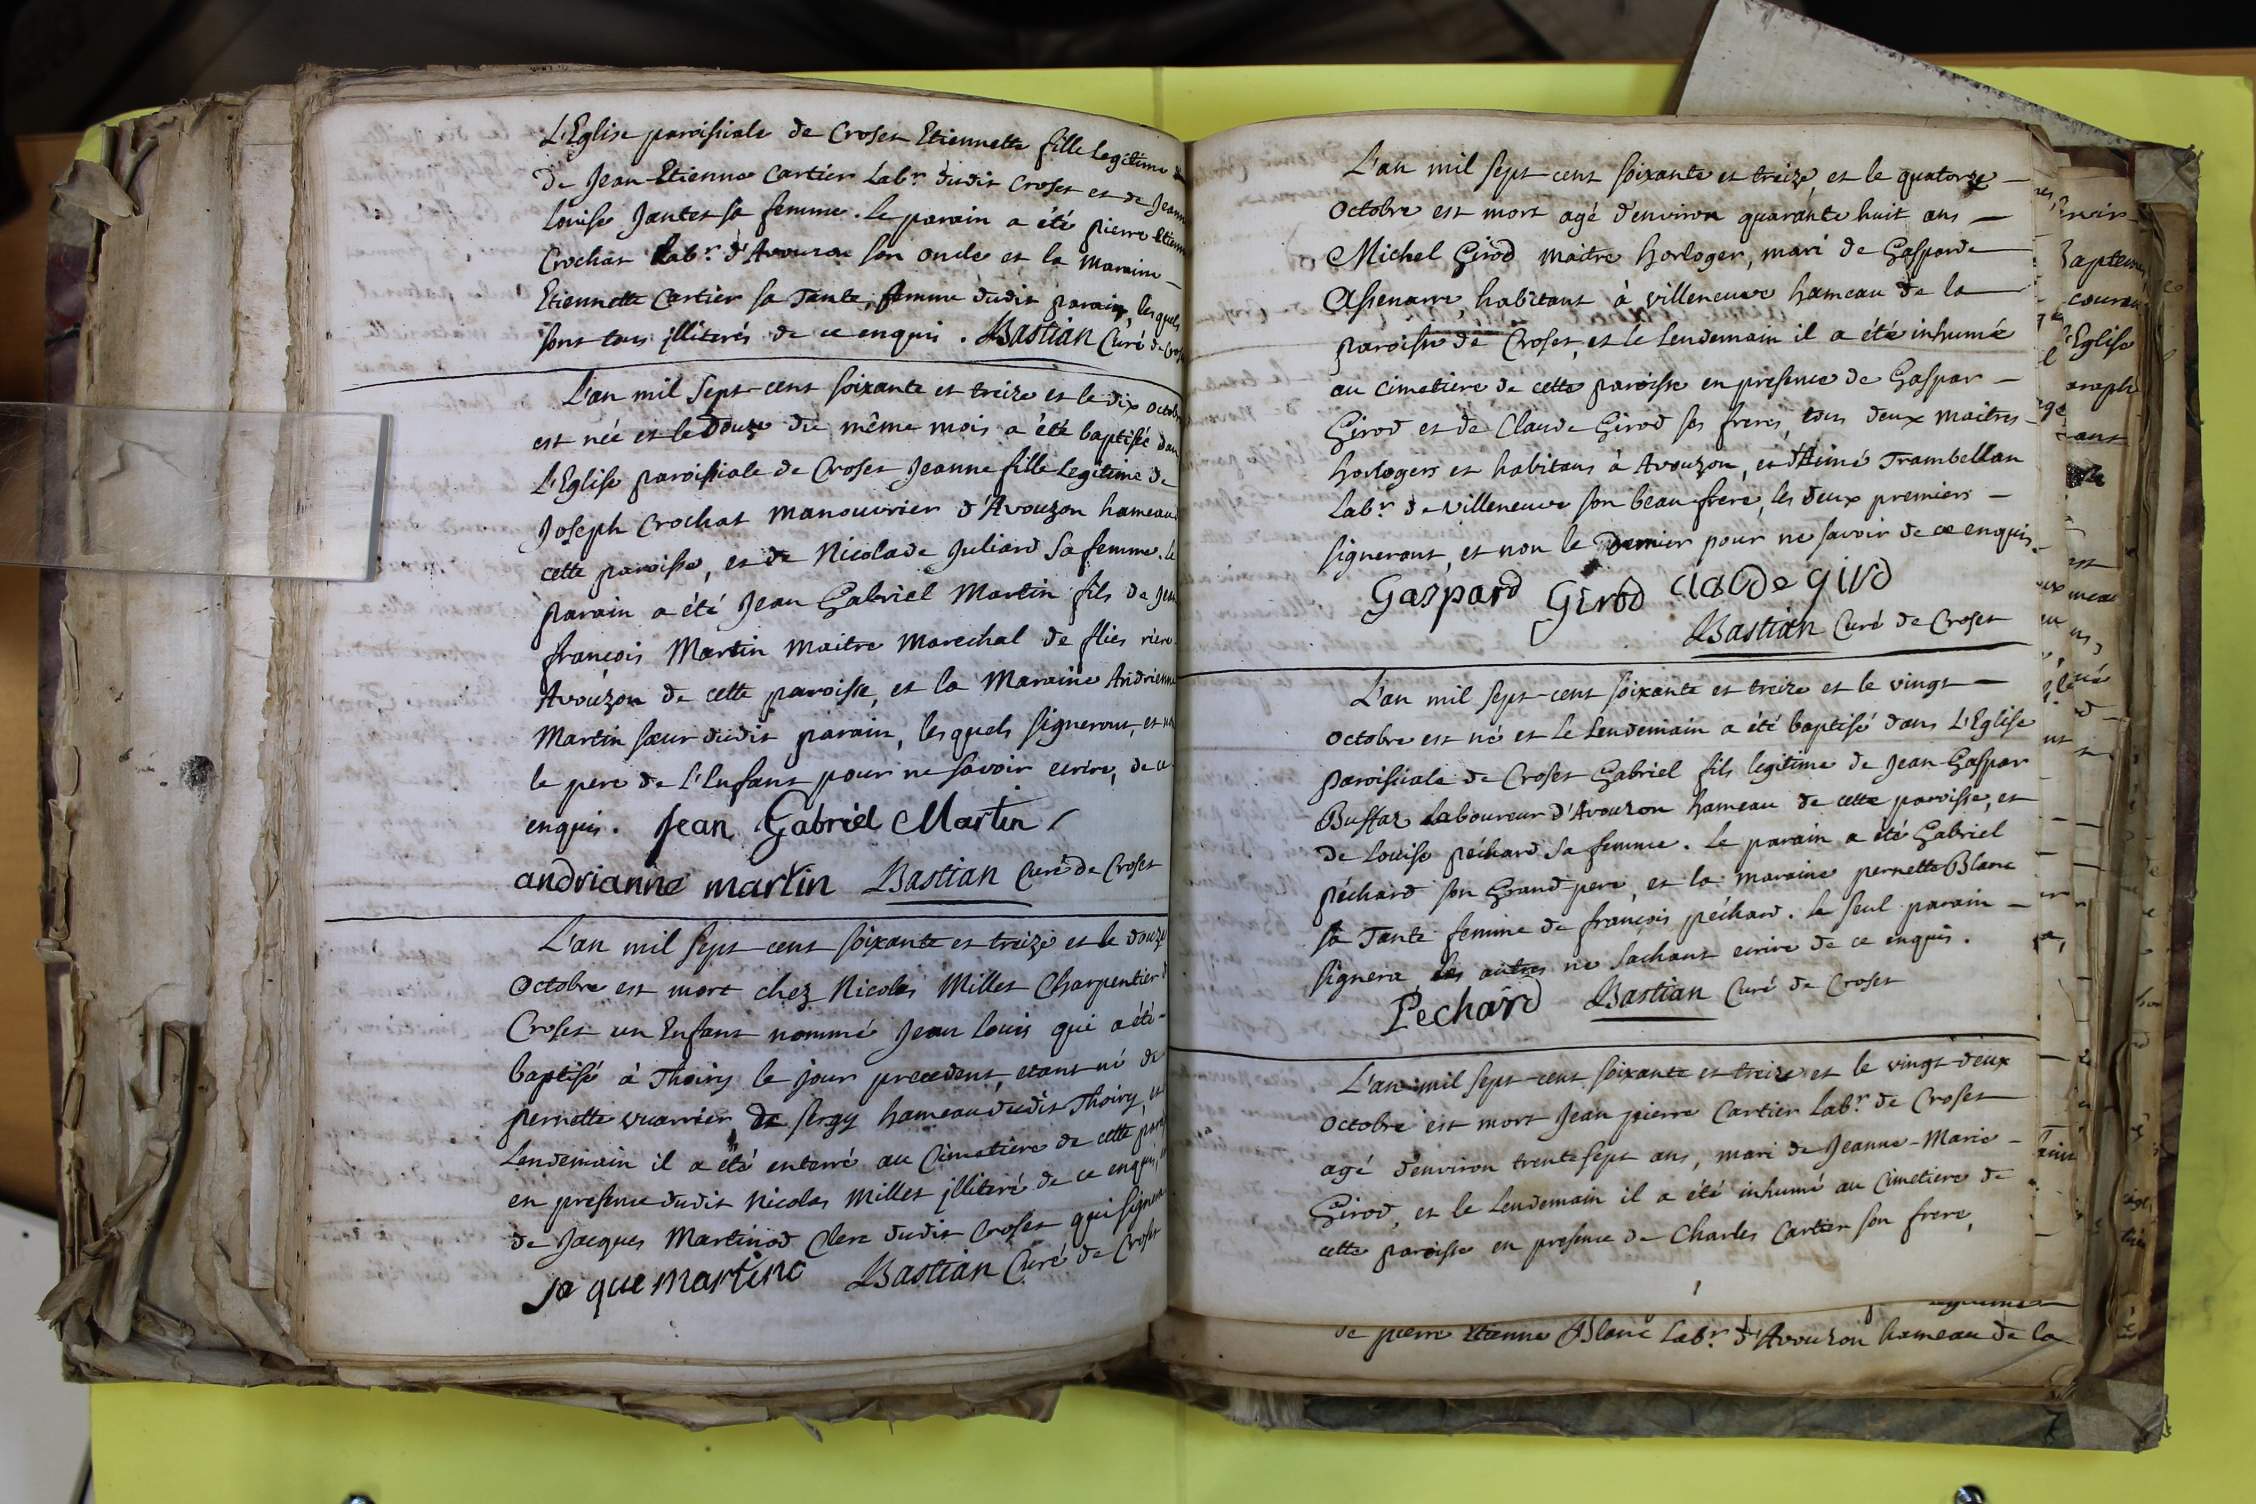 L'Eglise paroissiale de Croset Etiennette fille legitime
De Jean-Etienne Cartier Labr. dudit Croset et de Jeanne
Louise Jantet sa femme. Le parain a été pierre Etienne
Crochat Labr. d'Avouzon son oncle et la Maraine
Etiennette Cartier sa Tante, femme dudit parain, lesquels
sont tous illiterés de ce enquis. Bastian Curé de Croset
L'an mil sept-cent soixante et treize et le dix octobre
est née et le Douze du même mois a été baptisée dans
L'Eglise paroissiale de Croset Jeanne fille Legitime de
Joseph Crochat manouvrier d'Avouzon hameau
cette paroisse, et de Nicolade Juliard sa femme. Le
parain a été Jean Gabriel Martin fils de Jean
françois Martin maitre marechal de flies riere
Avouzon de cette paroisse, et la Maraine Andrienne
Martin sœur dudit parain, lesquels signeront, et non
le pere de l'Enfant pour ne savoir ecrire, de ce
enquis. Jean Gabriel Martin
andrianne martin Bastian Curé de Croset
L'an mil sept-cent soixante et treize et le douze
Octobre est mort chez Nicolas Millet Charpentier
Croset un Enfant nommé Jean Louis qui a été
baptisé à Thoiry le jour precedent, etant né de
pernette vuarrier, de sergy hameau dudit Thoiry, et
Lendemain il a été enterré au Cimetiere de cette
en presence dudit Nicolas Millet illiteré de ce enquis,
de Jacques Martinod Clerc dudit Croset qui signera
Ja que martino Bastian Curé de Croset
L'an mil sept-cent soixante et treize, et le quatorze
Octobre est mort agé d'environ quarante huit ans
Michel Girod maitre horloger, mari de Gasparde
Assenarre, habitant à villeneuve hameau de la
paroisse de Croset, et le Lendemain il a été inhumé
au cimetiere de cette paroisse en presence de Gaspar
Girod et de Claude Girod ses freres, tous deux maitres
horlogers et habitans à Avouzon, et d'Aimé Trambellan
Labr. de villeneuve son beau frere, les deux premiers
signeront, et non le Dernier pour ne savoir de ce enquis.
Gaspard Girod Claude girod
Bastian Curé de Croset
L'an mil sept-cent soixante et treize et le vingt
octobre est né et le Lendemain a été baptisé dans L'Eglise
paroissiale de Croset Gabriel fils legitime de Jean-Gaspar
Buffaz Laboureur d'Avouzon hameau de cette paroisse, et
de Louise péchard sa femme. Le parain a été Gabriel
péchard son Grand-pere, et la maraine pernette Blanc
sa Tante femme de françois péchard. Le seul parain
signera, les autres ne sachant ecrire de ce enquis.
Pechard Bastian Curé de Croset
L'an mil sept-cent soixante et treize et le vingt-deux
Octobre est mort Jean pierre Cartier Labr. de Croset
agé d'environ trente sept ans, mari de Jeanne-Marie
Girod, et le Lendemain il a été inhumé au Cimetiere de
cette paroisse en presence de Charles Cartier son frere,
de pierre Etienne Blanc Labr. d'Avouzon hameau de la